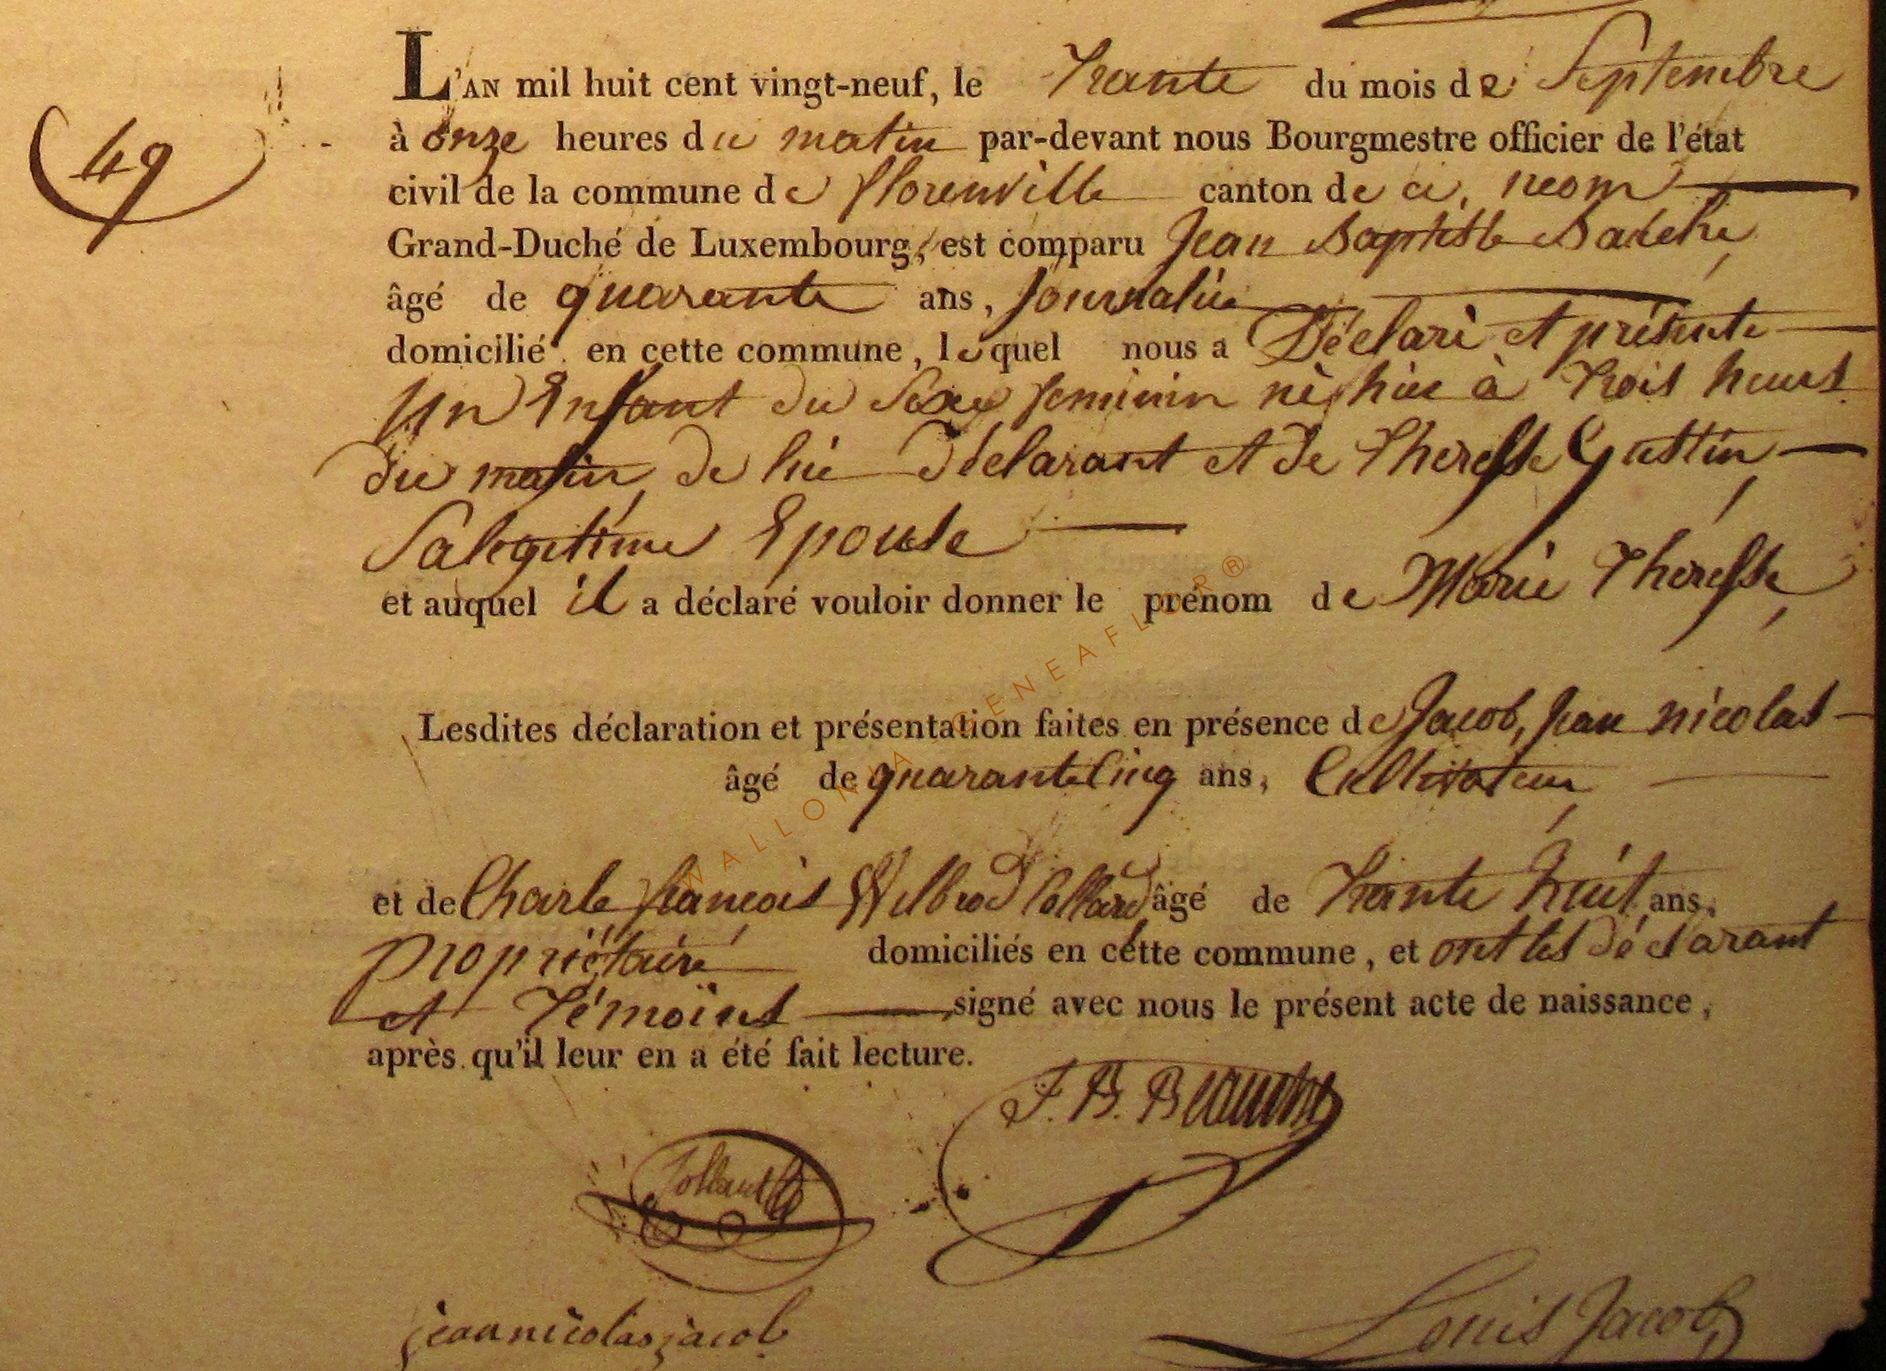 49
L'AN mil huit cent vingt-neuf, le Trente du mois de Septembre
à onze heures du matin par-devant nous Bourgmestre officier de l'état
civil de la commune de florenville canton de ce nom
Grand-Duché de Luxembourg, est comparu Jean Baptiste
âgé de quarante ans, Journalier
domicilié en cette commune, lequel nous a Déclaré et présenté
Un Enfant du Sexe feminin né hier à Trois heures
du matin, de lui déclarant et de Theresse Gustin,
Sa legitime Epouse
et auquel il a déclaré vouloir donner le prénom de Marie Theresse,
Lesdites déclaration et présentation faites en présence de Jacob, Jean nicolas
âgé de quarante Cinq ans, Cultivateur,
et de Charle françois Wilbrod Collard âgé de Trente huit ans,
propriétaire, domiciliés en cette commune, et ont les déclarant
et Témoins signé avec nous le présent acte de naissance,
après qu'il leur en a été fait lecture.
J. B.
jean nicolas jacob
Louis Jacob
WALLONIA GENEAFLOR®